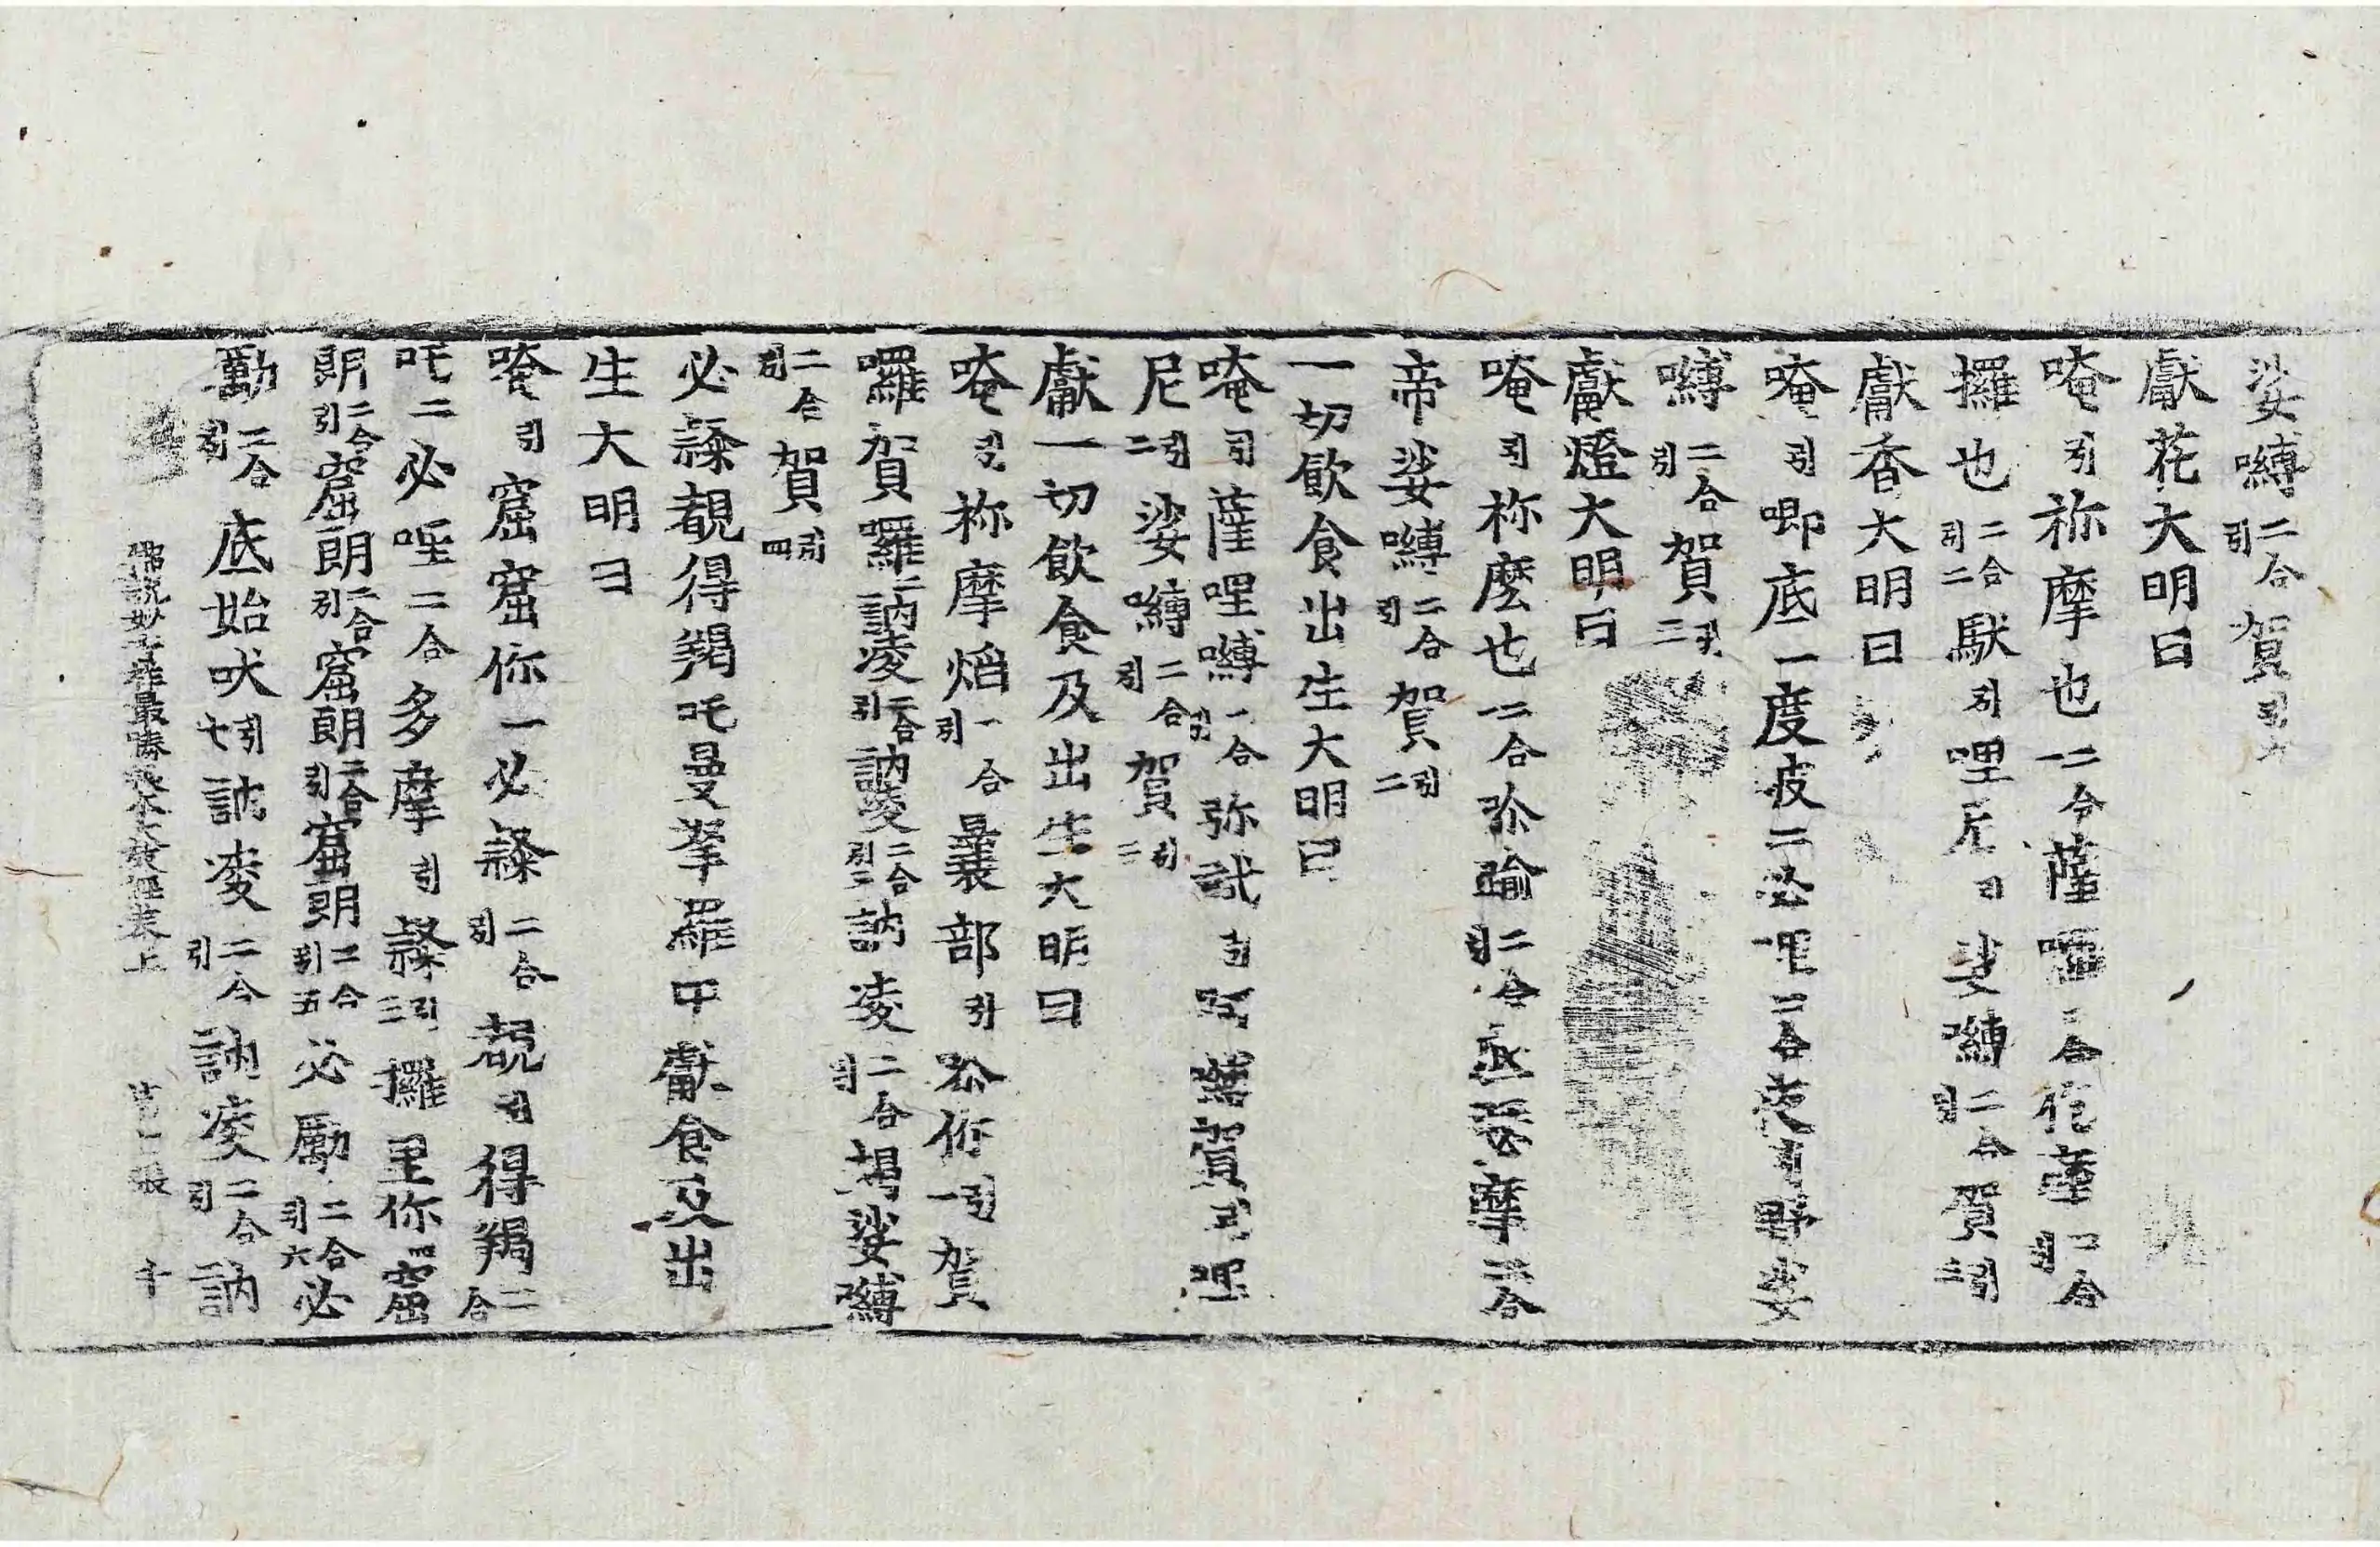 娑嚩二合引賀引
獻花大明曰
唵引祢摩也二合薩二合薩二合引
攞也二合引二馱引哩尼引娑嚩二合引賀引三
獻香大明曰
唵引唧底一度皮二二合娑
嚩二合引賀引三
獻燈大明曰
唵引祢麼也二合祢踰二合引摩二合
帝娑嚩二合引賀引二
一切飲食出生大明曰
唵引薩哩嚩二合引弥試賀引哩
尼引二娑嚩二合引賀引三
獻一切飲食及出生大明曰
唵引祢摩熖二合引曩部引祢你引一賀
囉賀囉二訥凌二合引訥凌二合引三訥凌二合引揭娑嚩
二合引賀引四
必㘑覩得羯吒曼拏羅中獻食及出
生大明曰
唵引窟窟你一必㘑二合引覩引得羯二合
吒二必哩二合多摩引㘑引三攞里你窟
朗二合引窟朗二合引窟朗二合引窟朗二合引五必勵二合引六必
勵二合引底始吠引七訥凌二合引訥凌二合引訥
佛說妙吉祥最勝根本大教經卷上 張 十